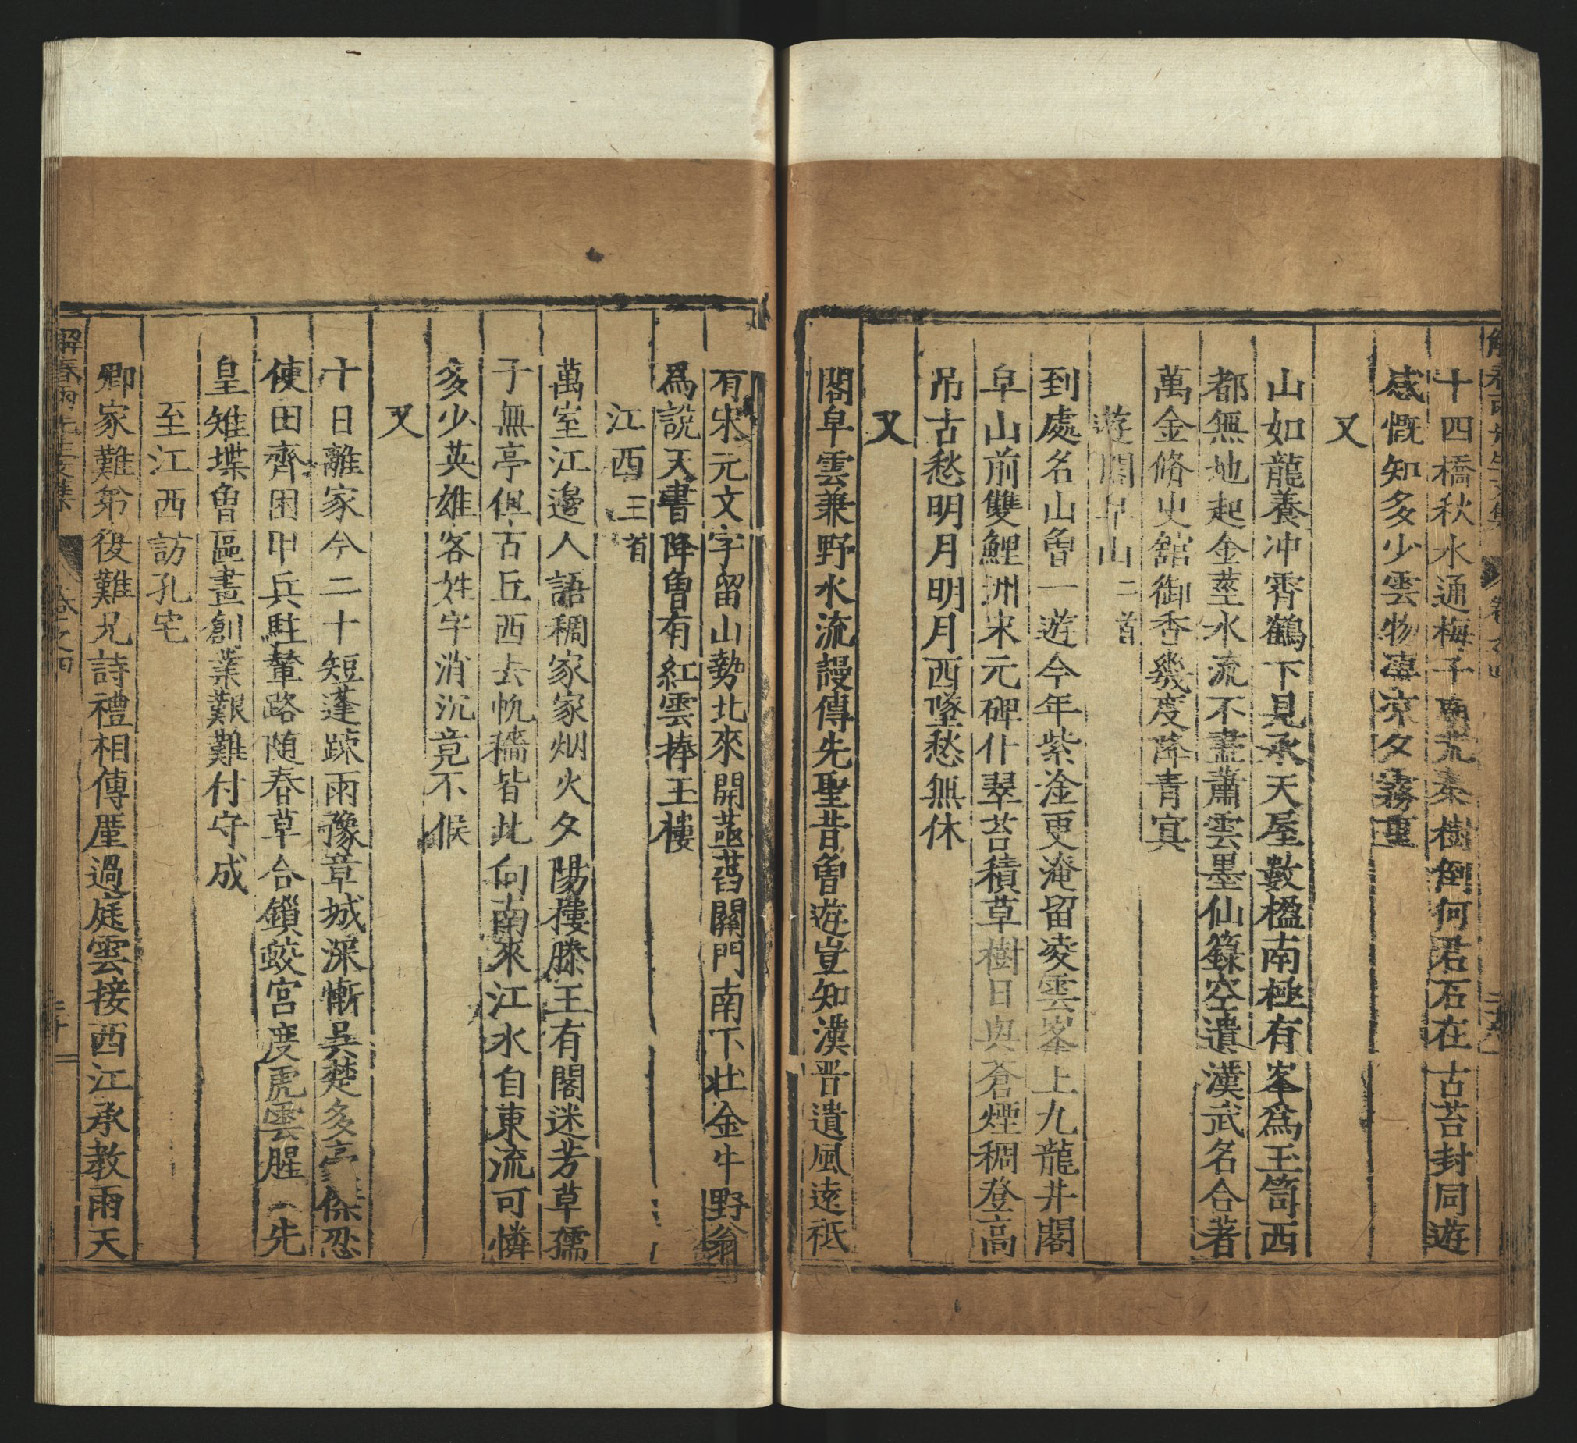 十四橋秋水通梅子雨荒秦樹倒何君石在古苔封同遊
感慨知多少雲物凄涼夕靄重
又
山如龍養冲霄鶴下見承天屋數楹南極有峯爲玉笥西
都無地起金莖水流不盡蕭雲墨仙籙空遺漢武名合著
萬金脩史舘御香幾度降青㝠
遊閣皁山二首
到處名山曾一遊今年紫淦更淹留凌雲峯上九龍井閣
皁山前雙鯉洲宋元碑仆翠苔積草樹日與蒼煙稠登高
吊古愁明月明月西墜愁無休
又
閣皁雲兼野水流謾傳先聖昔曾遊豈知漢晋遺風遠祗
有宋元文字留山勢北來開菡萏關門南下壯金牛野翁
爲說天書降曾有紅雲捧玉樓
江西三首
萬室江邊人語稠家家烟火夕陽樓滕王有閣迷芳草孺
子無亭但古丘西去帆檣皆此向南來江水自東流可憐
多少英雄客姓字消沉竟不候
又
十日離家今二十短蓬踈雨豫章城深慚吳楚多高傑忍
使田齊困甲兵駐輦路隨春草合鎖蛟宮度虎雲腥先
皇雉堞曾區畫創業艱難付守成
至江西訪孔宅
卿家難弟役難兄詩禮相傳厪過庭雲接西江承教雨天
解春雨先生文集 卷之四